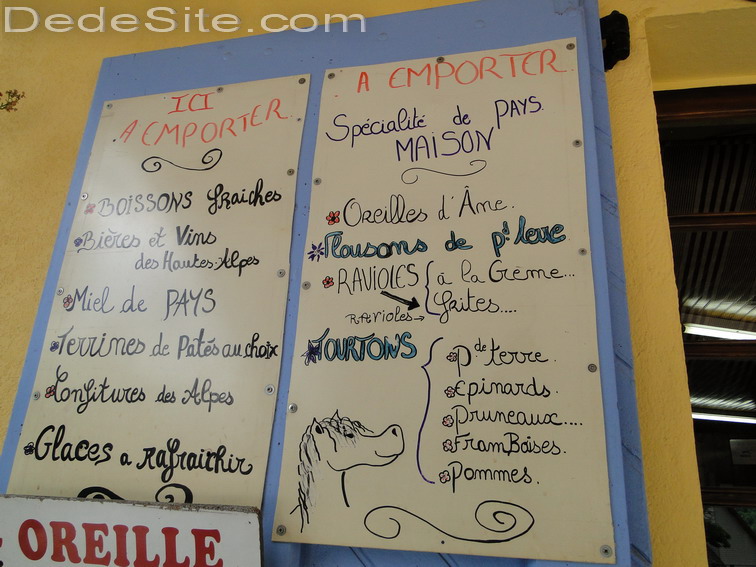 DedeSite.com
ICI
A EMPORTER.
BOISSONS fraiches
Bières et Vins
des Hautes-Alpes
Miel de PAYS
Terrines de Patés au choix
Confitures des Alpes
Glaces a Rafraichir
A EMPORTER.
Spécialité de PAYS.
MAISON
Oreilles d'Âme.
Flousons de p.d terre.
RAVIOLES à la Crème...
frites....
RAvioles→
TOURTONS
P de terre.
Epinards.
Pruneaux....
FramBoises.
Pommes.
OREILLE